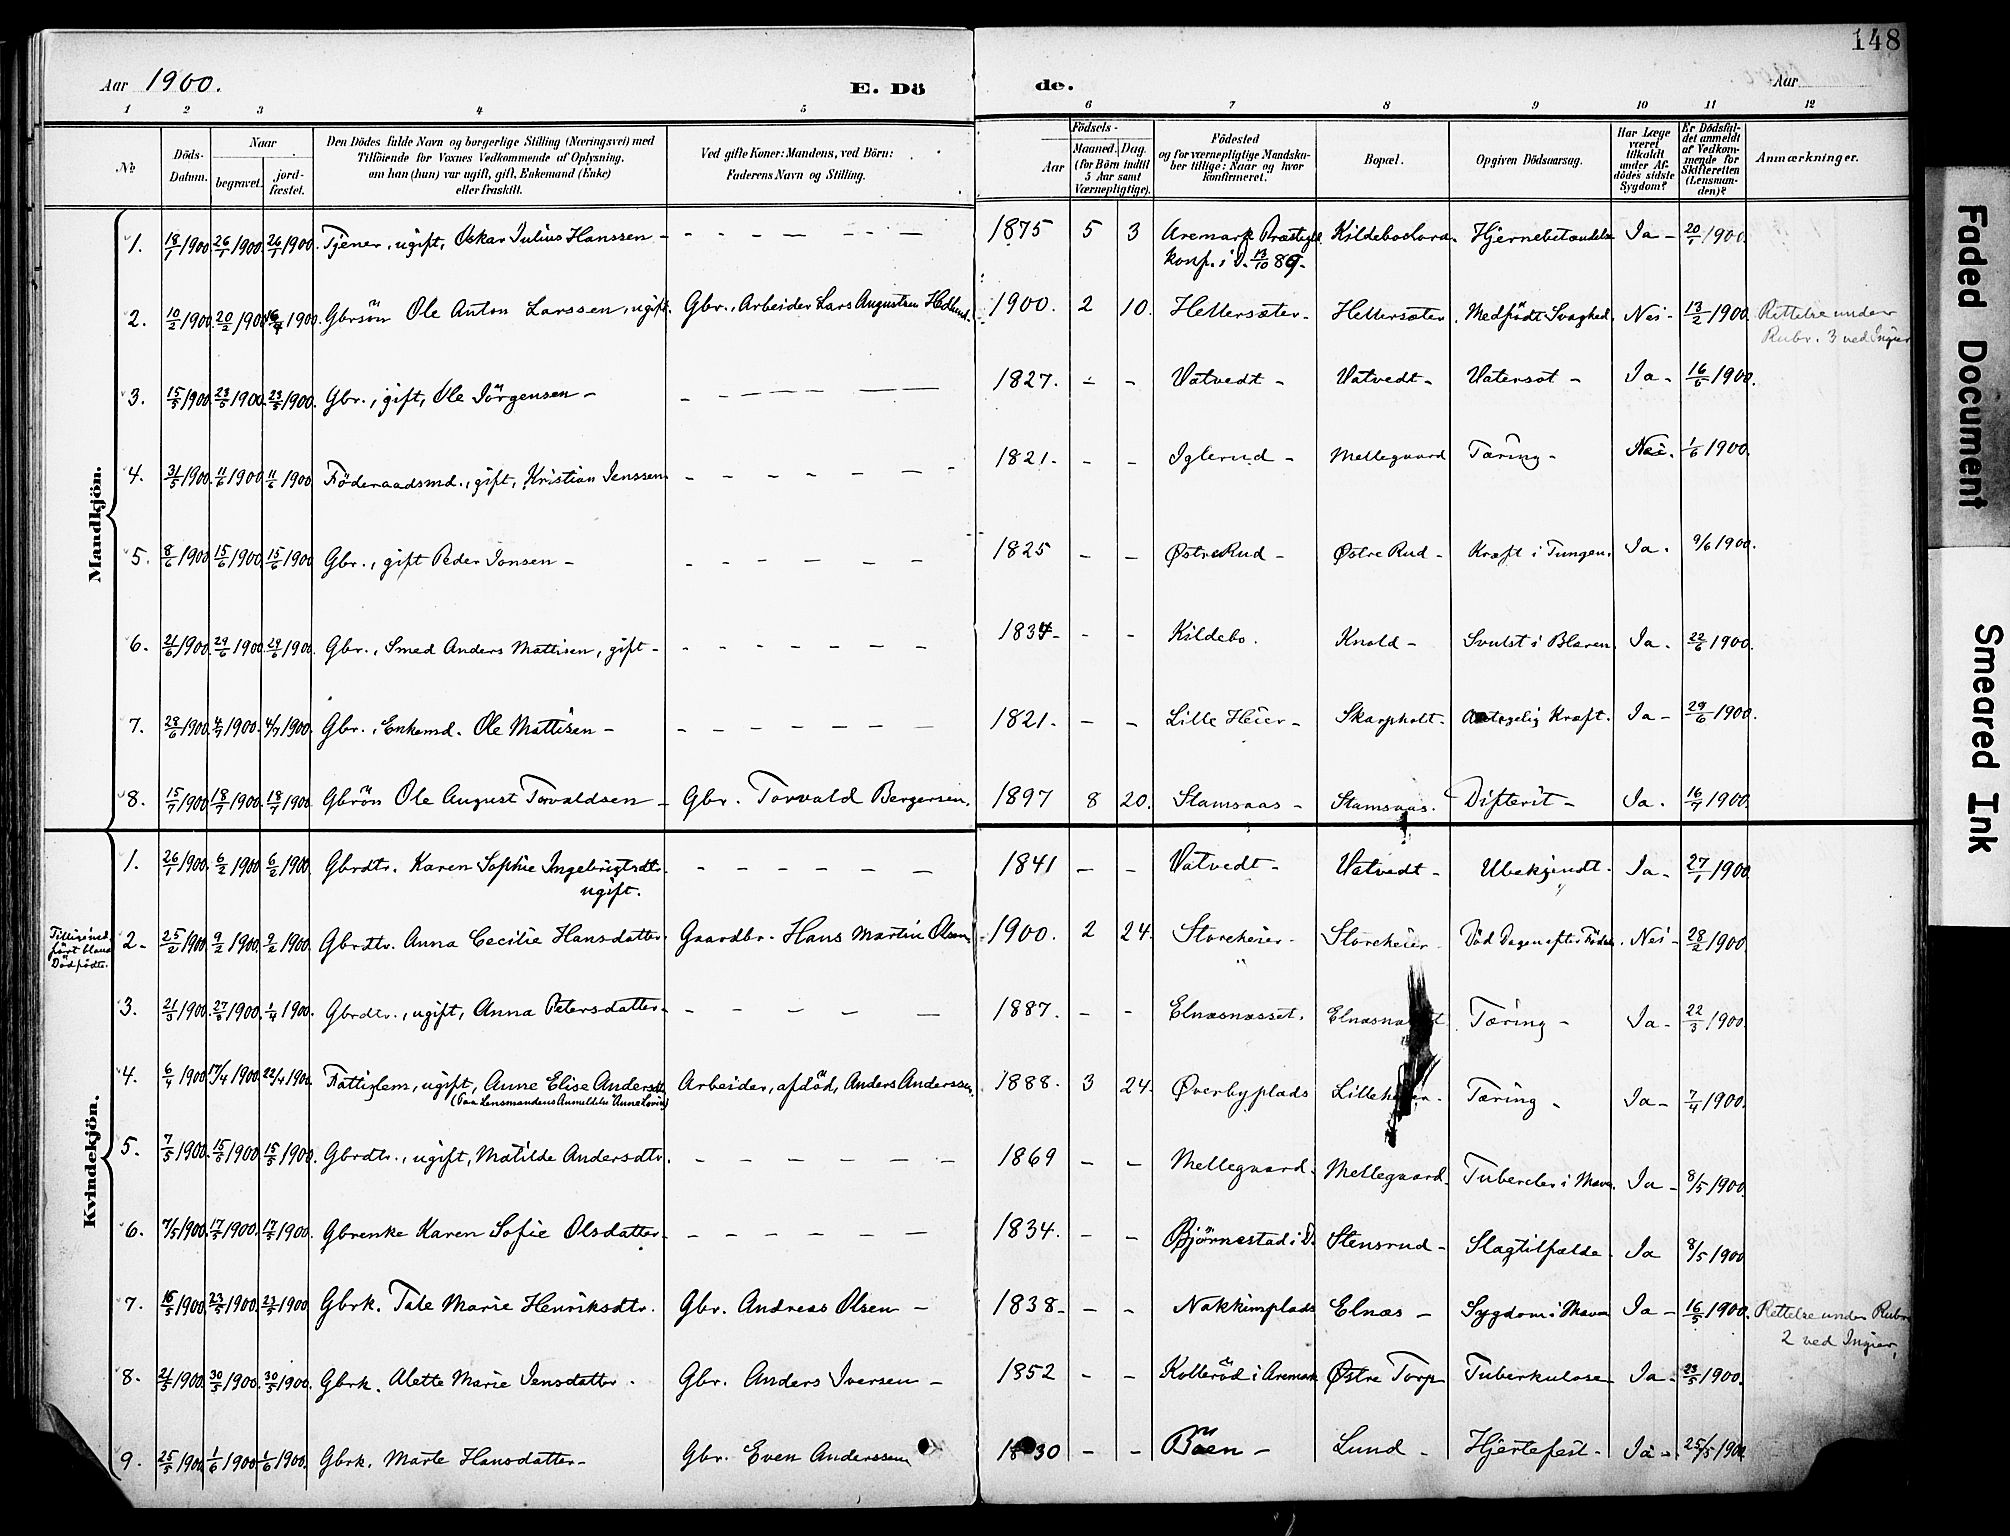 148
Aar 1900. E. Dö de. Aar
1 2 3 4 5 6 7 8 9 10 11 12
№ Döds-Datum. Naar begravet. jord-fæstet. Den Dödes fulde Navn og borgerlige Stilling (Næringsvei) med Tilföiende for Voxnes Vedkommende af Oplysning, om han (hun) var ugift, gift, Enkemand (Enke) eller fraskilt. Ved gifte Koner: Mandens, ved Börn: Faderens Navn og Stilling. Födsels- Aar Maaned. Dag. (for Börn indtil 5 Aar samt Værnepligtige). Födested og for værnepligtige Mandskaber tillige: Naar og hvor konfirmeret. Bopæl. Opgiven Dödsaarsag. Har Læge været tilkaldt under Afdödes sidste Sygdom? Er Dödsfaldet anmeldt af Vedkommende for Skifteretten (Lensmanden)? Anmærkninger.
Mandkjön.
1. 18/1 1900. 26/1 1900. 26/1 1900. Tjener, ugift, Oskar Julius Hanssen - - - - - - - 1875 5 3 Aremark Præstegd. Hjernebetændelse Ja - 20/1 1900.
Konf. i 13/10 89.
2. 10/2 1900. 20/2 1900 1900. Gbrsön Ole Anton Larssen, ugift. Gbr., Arbeider Lars Augustsen Hedlund. 1900. 2 10. Hellersæter - Hellersæter. Medfödt Svaghed. Nei - 13/2 1900. Rettelse under
Rubr. 3 ved Ingier
3. 15/5 1900. 23/5 1900. 23/5 1900. Gbr., gift, Ole Jörgensen - - - - - - 1827. - - Vatvedt - Vatvedt - Vatersot - Ja - 16/5 1900.
4. 31/5 1900. 11/6 1900 11/6 1900 Föderaadsmd., gift, Kristian Jenssen - - - - - - 1821. - - Iglerud - Mellegaard Tæring - Nei. 1/6 1900.
5. 8/6 1900. 15/6 1900 15/6 1900 Gbr., gift Peder Jonsen - - - - - - 1825 - - Østre Rud - Østre Rud - Kræft i Tungen. Ja. 9/6 1900.
6. 21/6 1900. 29/6 1900. 29/6 1900. Gbr., Smed Anders Mattisen, gift - - - - - - 1834 - - - Kildebo. Knold - Svulst i Blæren. Ja. 22/6 1900.
7. 28/6 1900. 4/7 1900. 4/7 1900. Gbr., Enkemd. Ole Mattisen - - - - - - 1821. - - Lille Heier - Skarpholt - Kræft. Ja - 29/6 1900.
8. 15/7 1900. 18/7 1900. 18/7 1900. Gbrön Ole August Torvaldsen - Gbr. Torvald Bergersen. 1897 8 20. Stamsaas - Stamsaas. Difterit - Ja. 16/7 1900.
Kvindekjön.
1. 26/1 1900. 6/2 1900 6/2 1900. Gbrdtr. Karen Sophie Ingebrigtsdtr. - - - - - 1841 - - Vatvedt - Vatvedt - Ubekjendt. Ja - 27/1 1900
ugift.
Tillige ind-
fört bland
Dödfödte. 2 - 25/2 1900. 9/2 1900. 9/2 1900. Gbrdtr. Anna Cecilie Hansdatter. Gaardbr. Hans Martin Olsen 1900. 2 24. Storeheier - Storeheier Död Dagen efter Födsel. Nei - 28/2 1900.
3. 21/3 1900. 27/3 1900. 1/4 1900. Gbrdtr., ugift, Anna Petersdatter - - - - - 1887. - - Elnæsnæsset. Tæring - Ja - 22/3 1900.
4. 6/4 1900 17/4 1900 22/4 1900. Fattiglem, ugift, Anne Elise Andersdt. Arbeider, afdöd, Anders Anderssen. 1888. 3 24. Øverbyplads Lilleheier. Tæring - Ja - 7/4 1900.
(Paa Lensmandens Anmeldelse Anne Lovise)
5. 7/5 1900. 15/5 1900 15/5 1900. Gbrdtr., ugift, Matilde Andersdtr. - - - - - - 1869 - - Mellegaard. Mellegaard. Tubercler i Mave. Ja - 8/5 1900.
6. 7/5 1900. 17/5 1900. 17/5 1900. Gbrenke Karen Sofie Olsdatter. - - - - - - 1834. - - Bjørnestad i D. Stensrud - Slagtilfælde. Ja 8/5 1900
7. 15/5 1900. 23/5 1900. 23/5 1900 Gbrk. Tale Marie Henriksdtr. Gbr. Andreas Olsen - 1838 - - - Nakkimplads Elnæs - Sygdom i Mave Ja - 16/5 1900. Rettelse under Rubr
2 ved Ingier,
8. 21/5 1900. 30/5 1900. 30/5 1900. Gbrk. Alette Marie Jensdatter. Gbr. Anders Iversen - 1852 - - Kolleröd i Aremark Østre Torp Tuberkulose Ja - 23/5 1900.
9. 25/5 1900 1/6 1900 1/6 1900. Gbrk. Marte Hansdatter - Gbr. Even Anderssen 1830 - - Böen - Lund - Hjertefeil. Ja - 25/5 1900
Faded Document
Smeared Ink